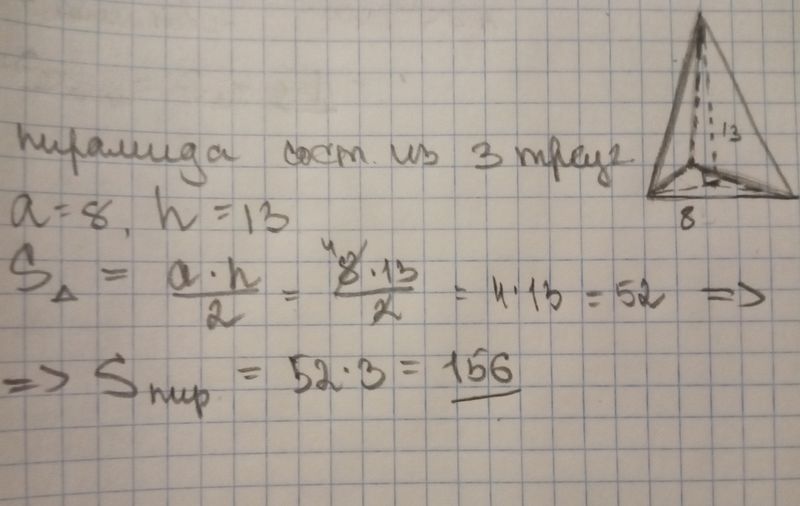 пирамида сост. из 3 треуг.
a=8, h=13
S△ = a·h/2 = 8·13/2 = 4·13 = 52 =>
=> Sпир = 52·3 = 156
13
8